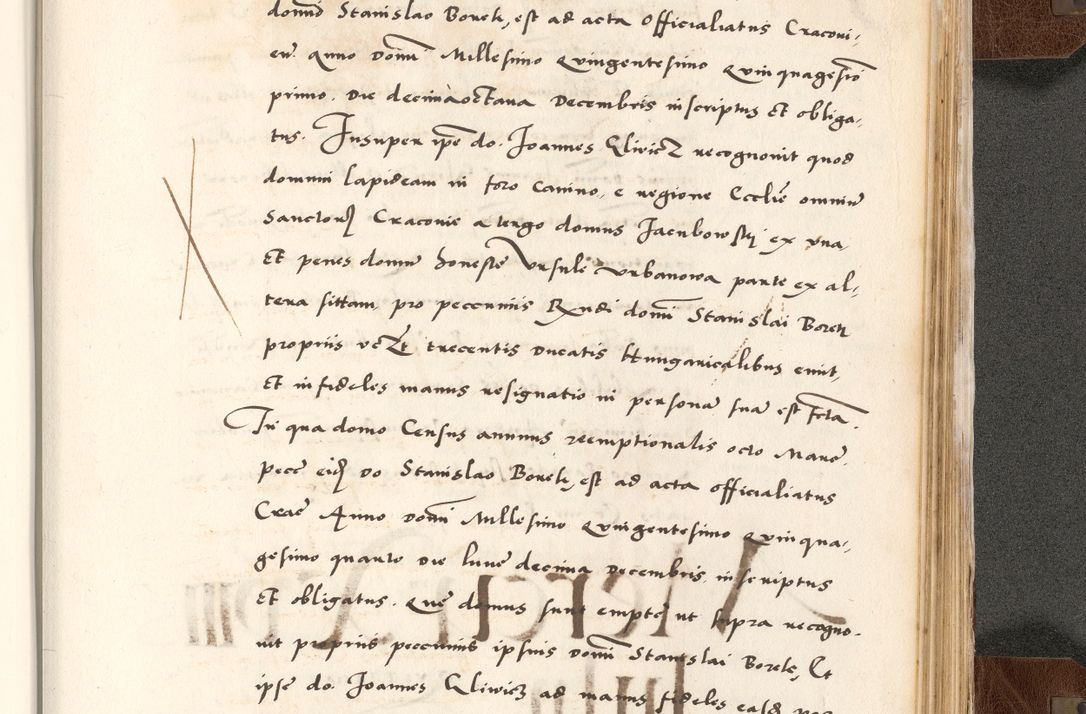 domino Stanislao Borek, est ad acta Officialiatus Cracovi-
en. Anno Domini Millesimo Quingentesimo Quinquagesimo
primo. Die decimaoctava Decembris inscriptus et obliga-
tus. Insuper ipse do. Joannes Gliwicz recognovit quod
domum lapideam in foro Canino, e regione Ecclie omnium
Sanctorum Cracovie a tergo domus Jacubowskj ex una
Et penes domum honeste Ursule Urbanowa parte ex al-
tera sittam, pro peccuniis Rndi domini Stanislai Borek
propriis trecentis Ducatis Hungaricalibus emit,
Et in fideles manus resignatio in personam suam est fcta.
In qua domo Census annuus reemptionalis octo Marc.
pecc eid. do Stanislao Borek, est ad acta officialiatus
Crac Anno domini Millesimo Quingentesimo Quinqua-
gesimo quarto Die lune decima Decembris inscriptus
Et obligatus. Que domus sunt empte ut supra recogno-
vit propriis peccuniis ipsius domini Stanislai Borek, Et
ipse do. Joannes Gliwicz ad manus fideles easd.